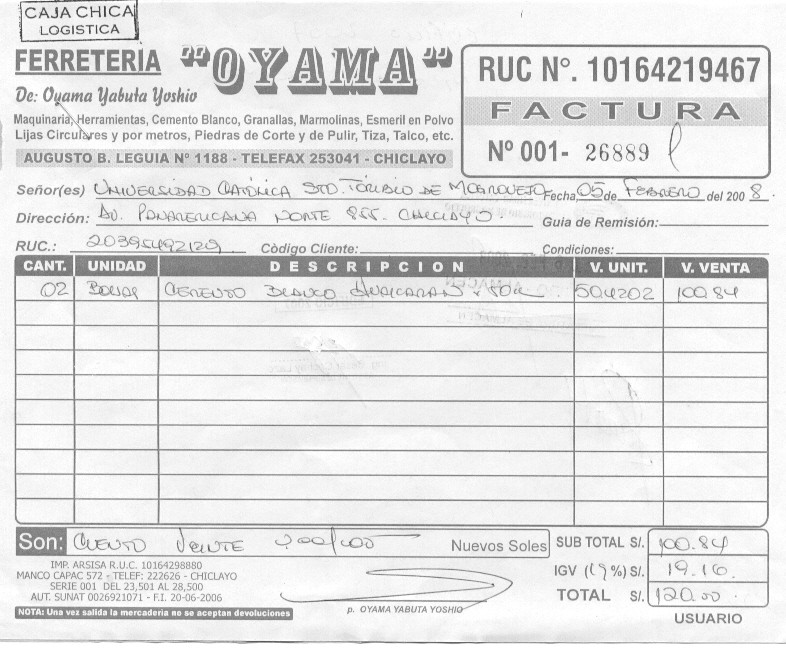 CAJA CHICA
LOGISTICA
FERRETERÍA "OYAMA"
De: Oyama Yabuta Yoshio
Maquinaria, Herramientas, Cemento Blanco, Granallas, Marmolinas, Esmeril en Polvo
Lijas Circulares y por metros, Piedras de Corte y de Pulir, Tiza, Talco, etc.
AUGUSTO B. LEGUIA Nº 1188 - TELEFAX 253041 - CHICLAYO
RUC Nº. 10164219467
FACTURA
Nº 001- 26889
Señor(es) UNIVERSIDAD CATÓLICA STO. TORIBIO DE MOGROVEJO Fecha, 05 de FEBRERO del 2008.
Dirección: AV. PANAMERICANA NORTE 855. CHICLAYO. Guia de Remisión:
RUC.: 20395492129 Còdigo Cliente: Condiciones:
CANT. UNIDAD DESCRIPCION V. UNIT. V. VENTA
02 BOLSAS CEMENTO BLANCO HUASCARAN 50.4202 100.84
Son: CIENTO VEINTE 00/100 Nuevos Soles
SUB TOTAL S/. 100.84
IGV (19%) S/. 19.16
TOTAL S/. 120.00
USUARIO
IMP. ARSISA R.U.C. 10164298880
MANCO CAPAC 572 - TELEF: 222626 - CHICLAYO
SERIE 001 DEL 23,501 AL 28,500
AUT. SUNAT 0026921071 - F.I. 20-06-2006
NOTA: Una vez salida la mercaderia no se aceptan devoluciones
p. OYAMA YABUTA YOSHIO